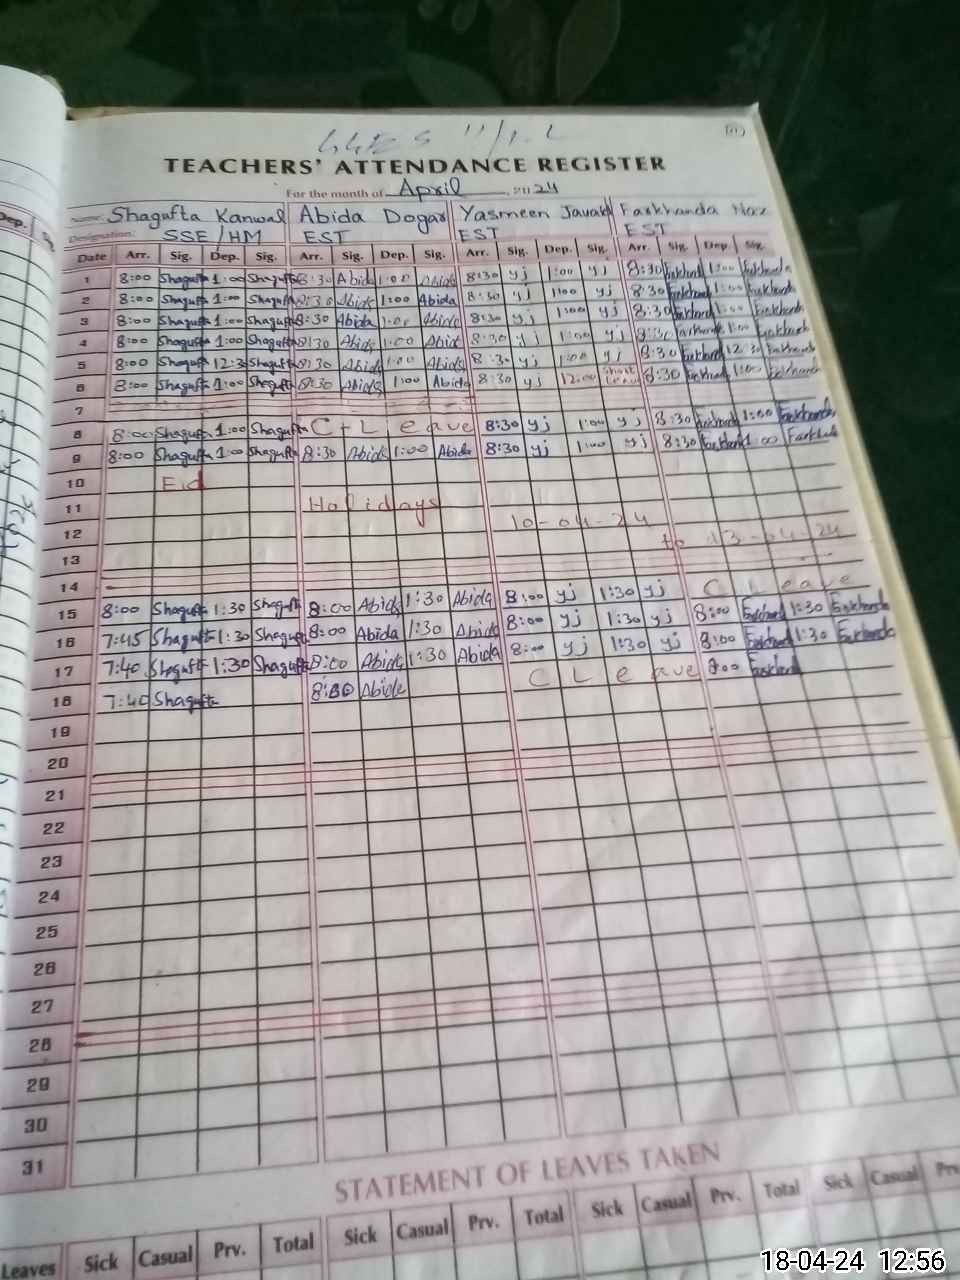 TEACHERS' ATTENDANCE REGISTER
For the month of April, 2024
Name: Shagufta Kanwal Abida Dogar Yasmeen Javaid Farkhanda Naz
Designation: SSE/HM EST EST EST
Date Arr. Sig. Dep. Sig. Arr. Sig. Dep. Sig. Arr. Sig. Dep. Sig. Arr. Sig. Dep. Sig.
1 8:00 Shagufta 1:00 Shagufta 8:30 Abida 1:00 Abida 8:30 yj 1:00 yj 8:30 Farkhanda 1:00 Farkhanda
2 8:00 Shagufta 1:00 Shagufta 8:30 Abida 1:00 Abida 8:30 yj 1:00 yj 8:30 Farkhanda 1:00 Farkhanda
3 8:00 Shagufta 1:00 Shagufta 8:30 Abida 1:00 Abida 8:30 yj 1:00 yj 8:30 Farkhanda 1:00 Farkhanda
4 8:00 Shagufta 1:00 Shagufta 8:30 Abida 1:00 Abida 8:30 yj 1:00 yj 8:30 Farkhanda 1:00 Farkhanda
5 8:00 Shagufta 12:30 Shagufta 8:30 Abida 1:00 Abida 8:30 yj 1:00 yj 8:30 Farkhanda 12:30 Farkhanda
6 8:00 Shagufta 1:00 Shagufta 8:30 Abida 1:00 Abida 8:30 yj 12:00 Short Leave 8:30 Farkhanda 1:00 Farkhanda
7
8 8:00 Shagufta 1:00 Shagufta C-Leave 8:30 yj 1:00 yj 8:30 Farkhanda 1:00 Farkhanda
9 8:00 Shagufta 1:00 Shagufta 8:30 Abida 1:00 Abida 8:30 yj 1:00 yj 8:30 Farkhanda 1:00 Farkhanda
10 Eid
11 Holidays
12 10-04-24
13 to 13-04-24
14
15 8:00 Shagufta 1:30 Shagufta 8:00 Abida 1:30 Abida 8:00 yj 1:30 yj C Leave
16 7:45 Shagufta 1:30 Shagufta 8:00 Abida 1:30 Abida 8:00 yj 1:30 yj 8:00 Farkhanda 1:30 Farkhanda
17 7:40 Shagufta 1:30 Shagufta 8:00 Abida 1:30 Abida 8:00 yj 1:30 yj 8:00 Farkhanda 1:30 Farkhanda
18 7:40 Shagufta 8:00 Abida C Leave 8:00 Farkhanda
19
20
21
22
23
24
25
26
27
28
29
30
31
STATEMENT OF LEAVES TAKEN
Leaves Sick Casual Prv. Total Sick Casual Prv. Total Sick Casual Prv. Total Sick Casual Prv.
18-04-24 12:56